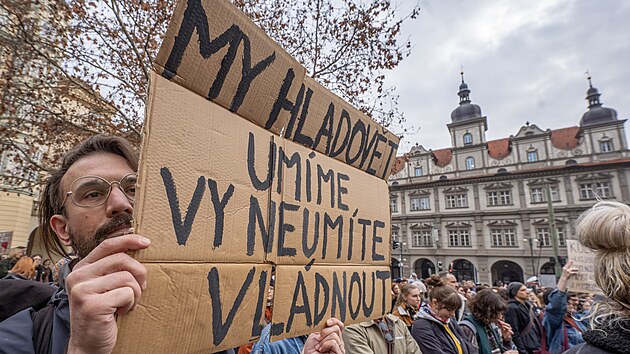 MY HLADOVĚT
UMÍME
VY NEUMÍTE
VLÁDNOUT